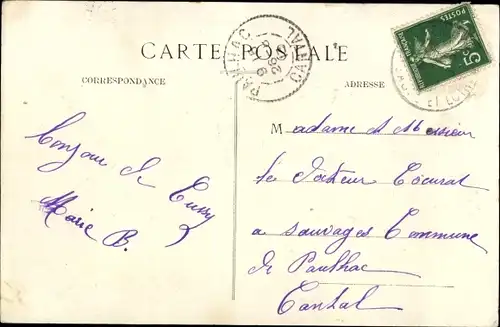 CARTE POSTALE
CORRESPONDANCE
ADRESSE
PAULHAC
CANTAL
POSTES
5
Bonjour de Cussy
Marie B.
Madame & Messieur
le Docteur
a Sauvages Commune
de Paulhac
Cantal